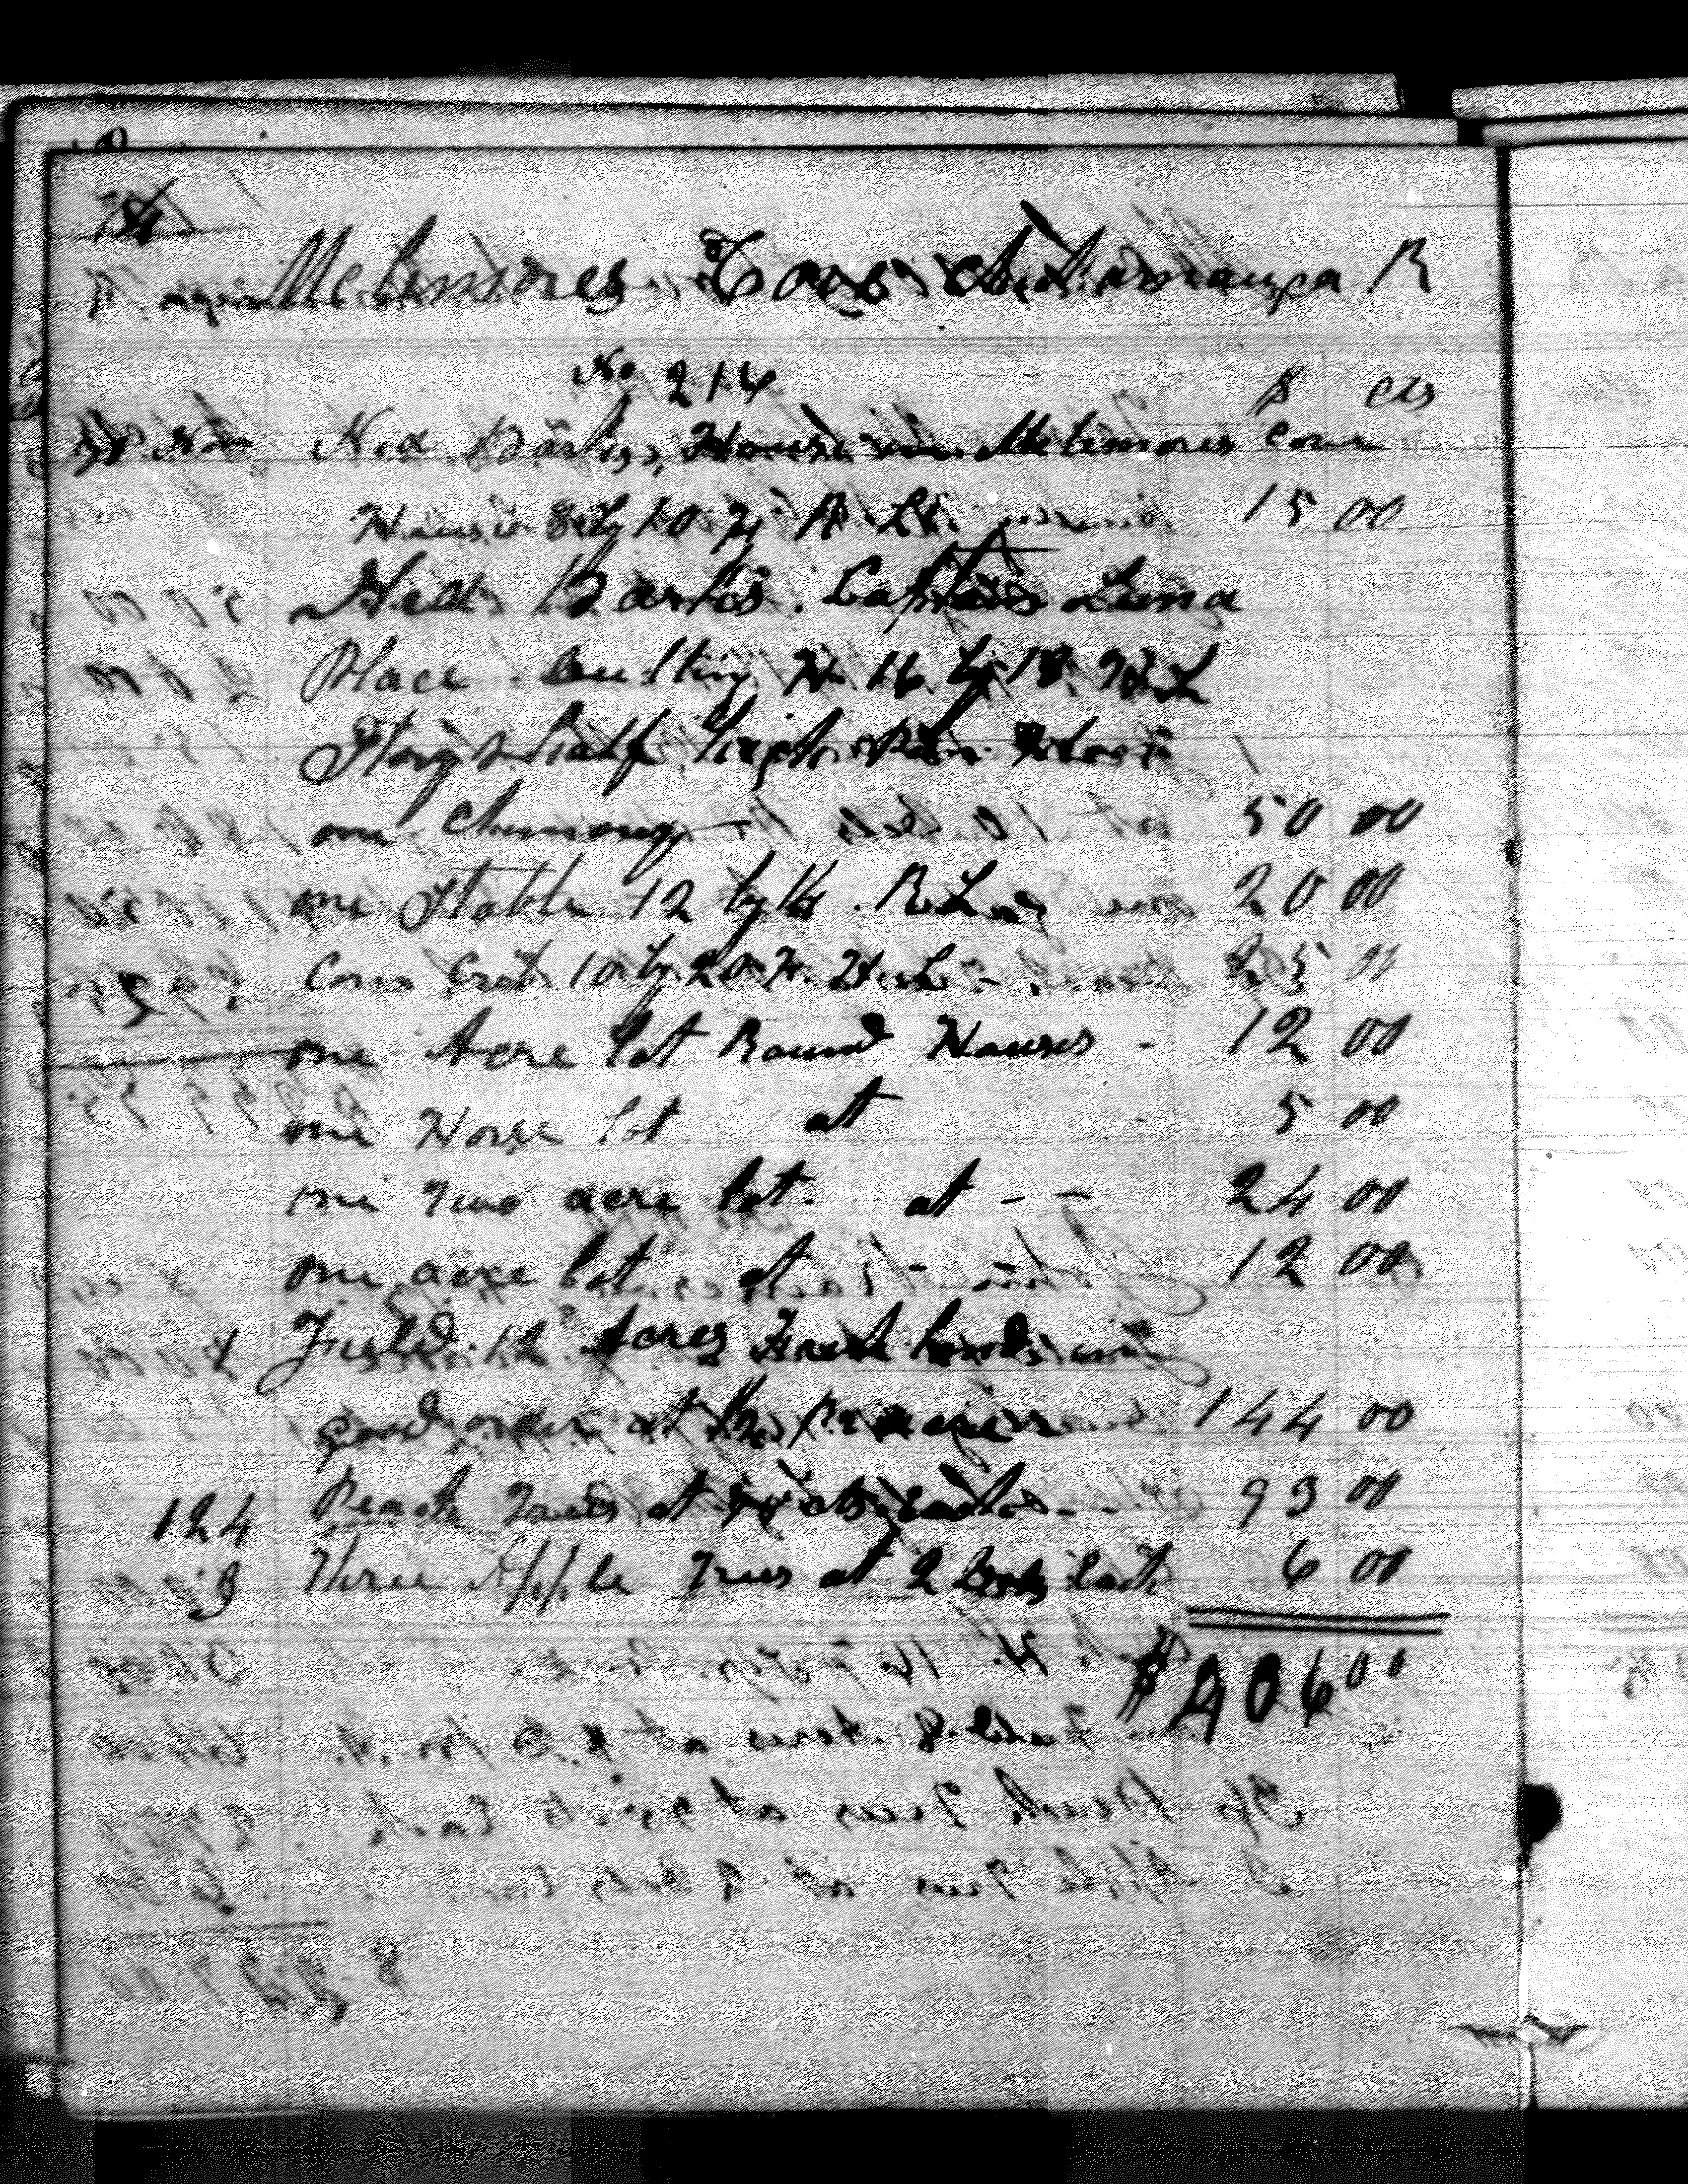 McLemores Cove Chickamauga R
No 214
$ cts
Nov Ned Barks, House in McLemores Cove
House 8 by 10 R. L. 15 00
Neds Barks. Captain
Place - H. 16 by 18 H. L
Story & half high
one Chimney - 50 00
one Stable 12 by R. Log 20 00
Corn Crib 10 by 20 H. L - 25 00
one Acre lot Round Houses - 12 00
one Horse lot at - 5 00
one Two acre lot. at - - 24 00
one acre lot at - - 12 00
1 Field 12 Acres Fresh Land in
good order at 12 pr acre 144 00
124 Peach Trees at cts Each - - 93 00
3 Three Apple Trees at 2 Dols Each 6 00
$406 00